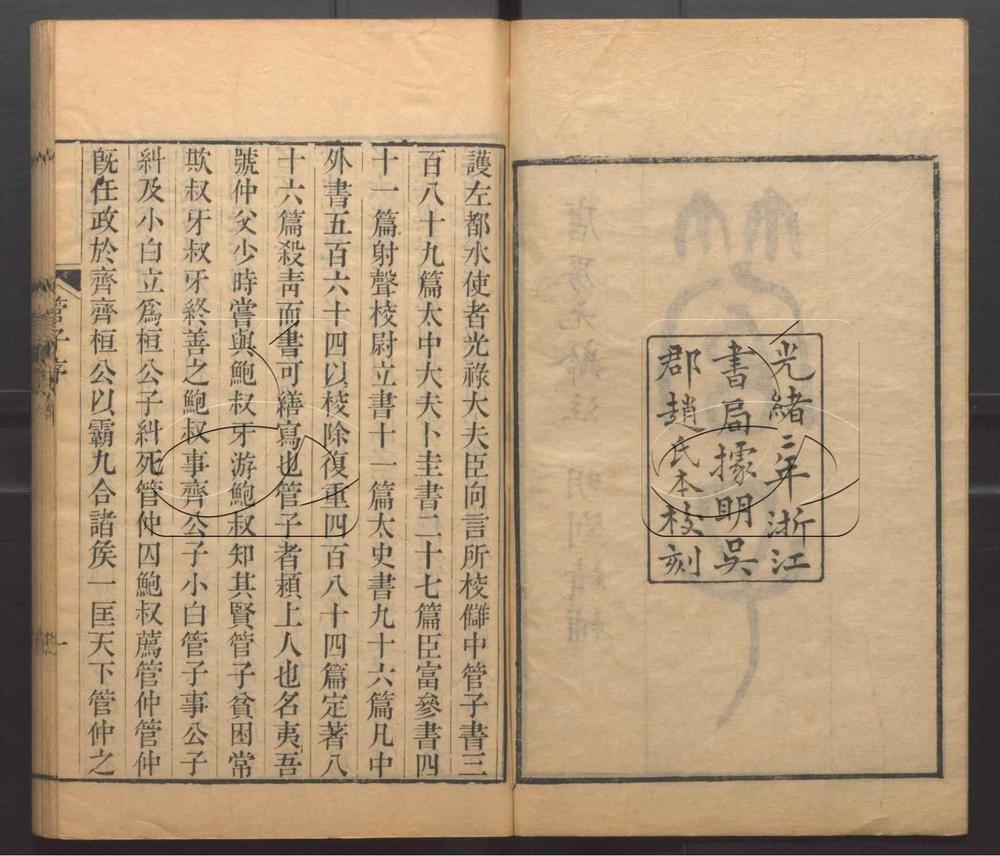 光緒二年浙江
書局據明吳
郡趙氏本校刻
護左都水使者光祿大夫臣向言所校讎中管子書三
百八十九篇太中大夫卜圭書二十七篇臣富參書四
十一篇射聲校尉立書十一篇太史書九十六篇凡中
外書五百六十四以校除復重四百八十四篇定著八
十六篇殺靑而書可繕寫也管子者頴上人也名夷吾
號仲父少時嘗與鮑叔牙游鮑叔知其賢管子貧困常
欺叔牙叔牙終善之鮑叔事齊公子小白管子事公子
糾及小白立爲桓公子糾死管仲囚鮑叔薦管仲管仲
旣任政於齊齊桓公以霸九合諸矦一匡天下管仲之
管子序
一